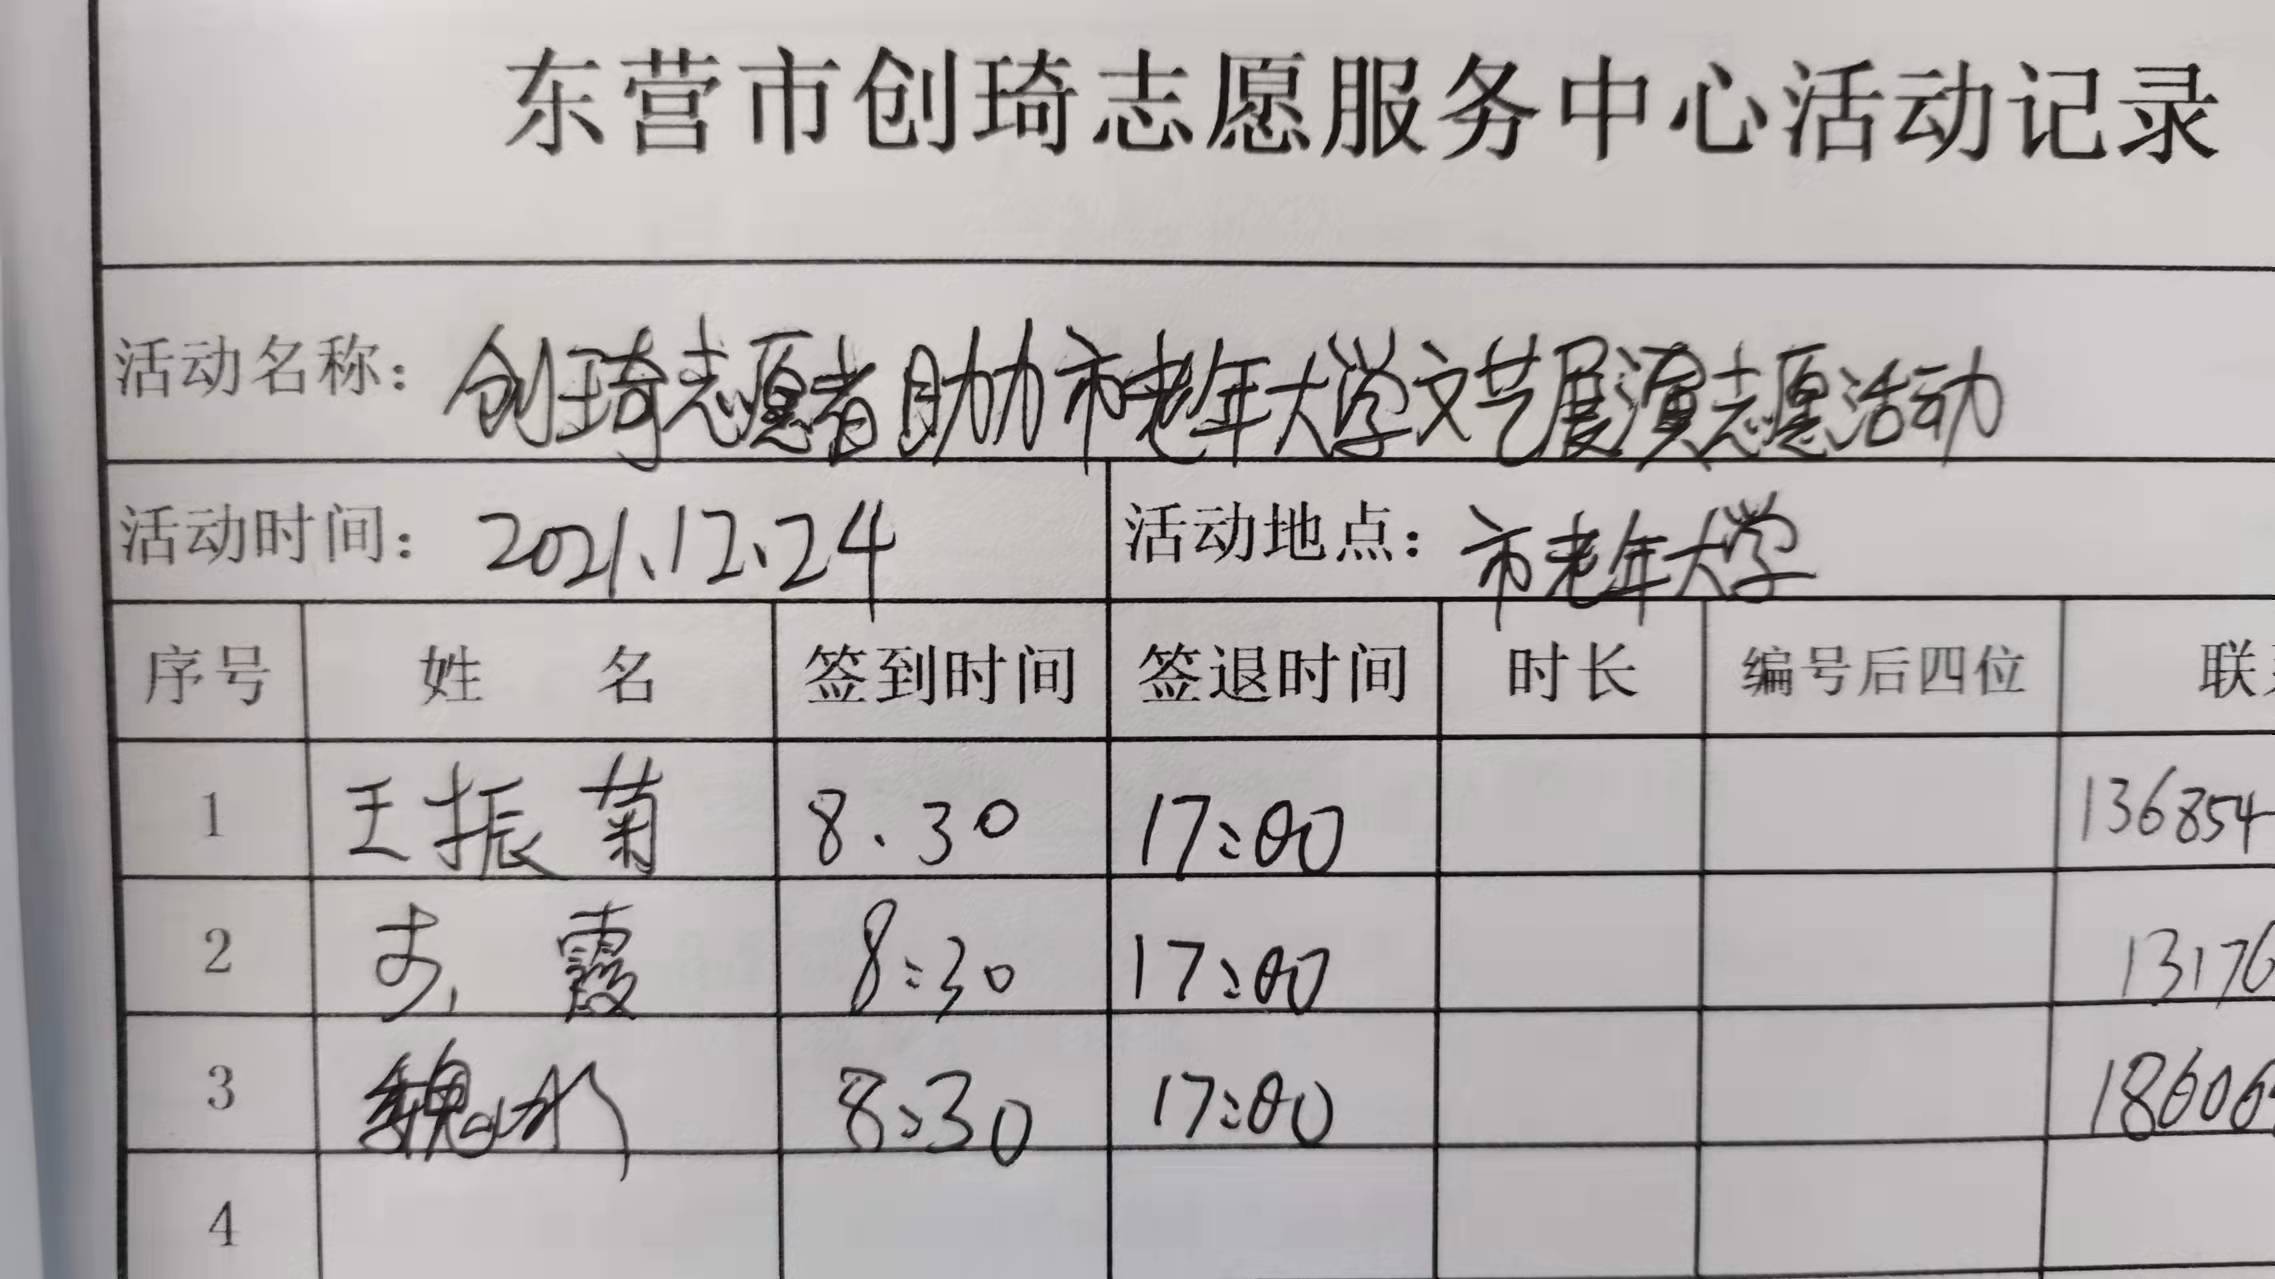 东营市创琦志愿服务中心活动记录
活动名称：创琦志愿者助力市老年大学文艺展演志愿活动
活动时间：2021.12.24 活动地点：市老年大学
序号 姓名 签到时间 签退时间 时长 编号后四位 联
1 王振菊 8.30 17:00 136854
2 霞 8:30 17:00 13176
3 魏 8:30 17:00 18606
4